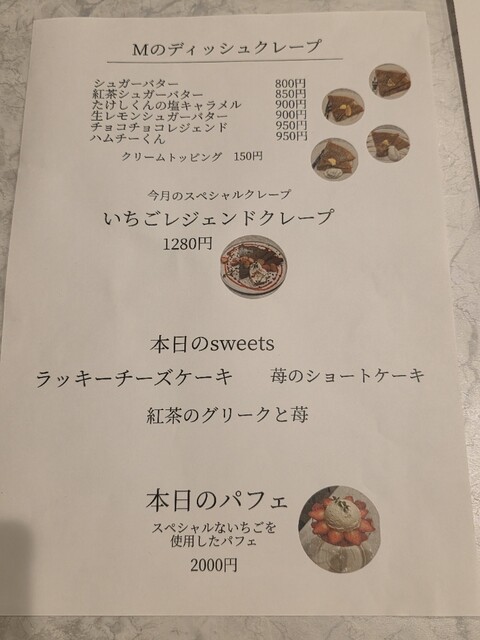 Mのディッシュクレープ
シュガーバター 800円
紅茶シュガーバター 850円
たけしくんの塩キャラメル 900円
生レモンシュガーバター 900円
チョコチョコレジェンド 950円
ハムチーくん 950円
クリームトッピング 150円
今月のスペシャルクレープ
いちごレジェンドクレープ
1280円
本日のsweets
ラッキーチーズケーキ 苺のショートケーキ
紅茶のグリークと苺
本日のパフェ
スペシャルないちごを
使用したパフェ
2000円